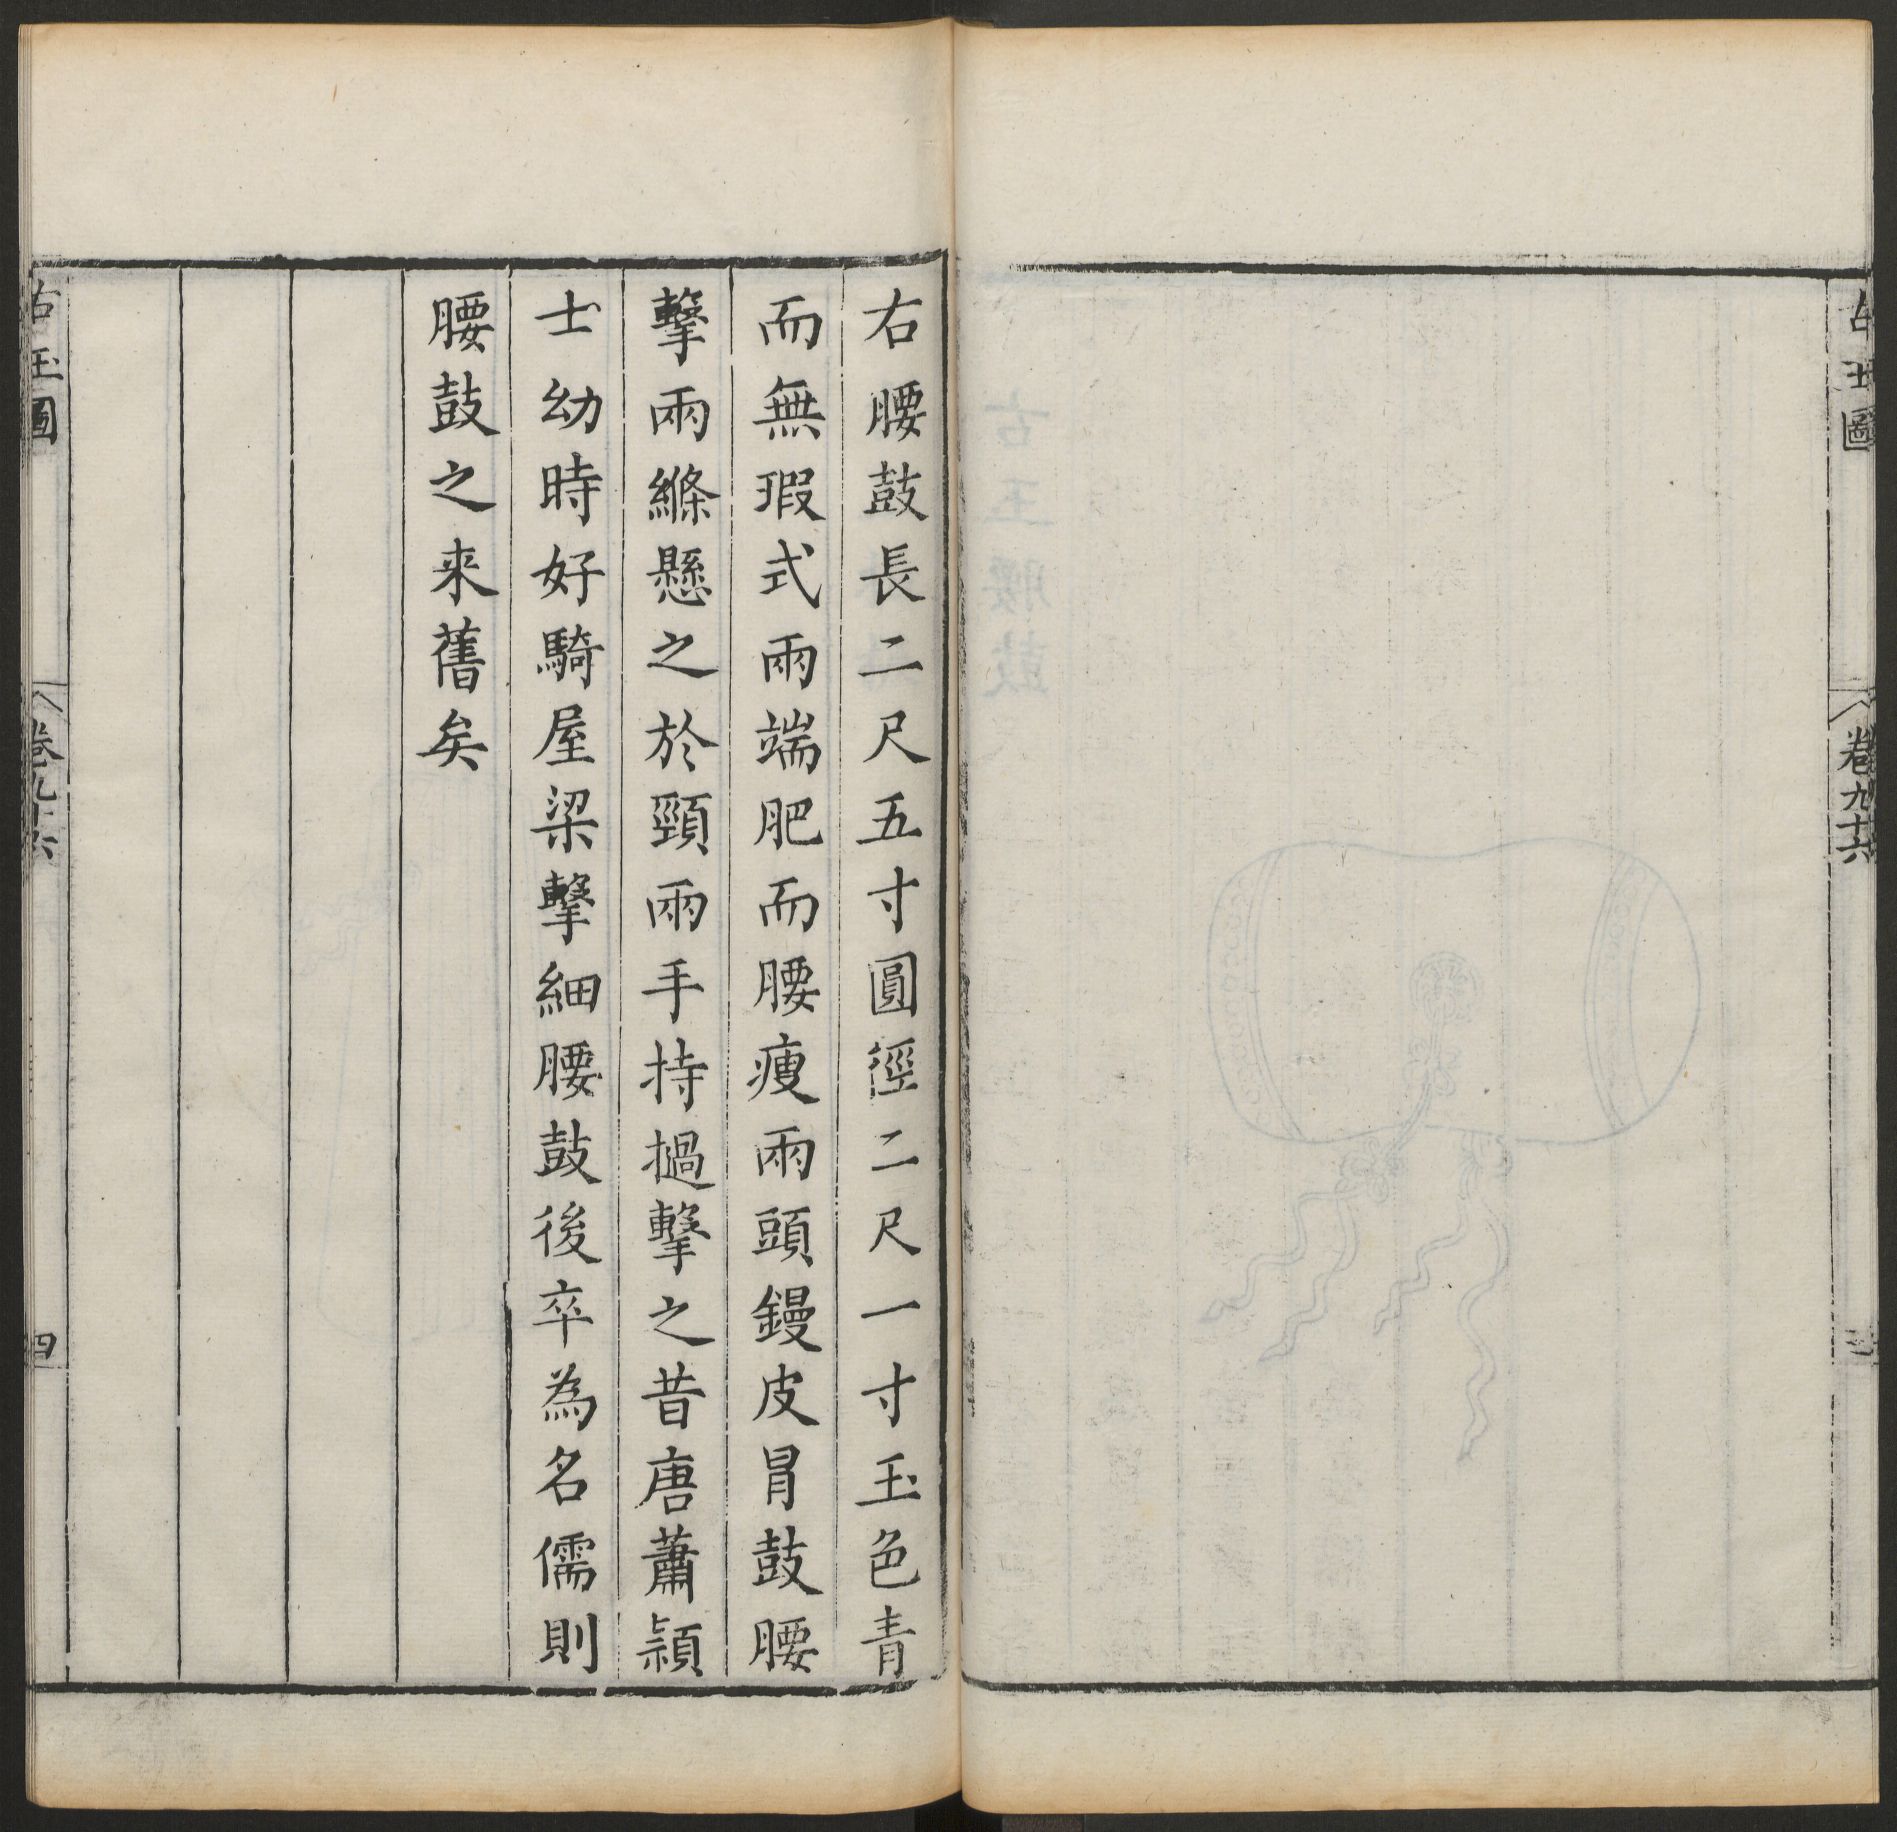 古玉圖
卷九十六
右腰鼓長二尺五寸圓徑二尺一寸玉色青
而無瑕式兩端肥而腰瘦兩頭鏝皮冒鼓腰
擊兩縧懸之於頸兩手持撾擊之昔唐蕭頴
士幼時好騎屋梁擊細腰鼓後卒為名儒則
腰鼓之来舊矣
古玉圖
卷九十六
四